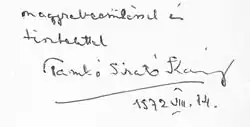 nagyrabecsüléssel és
tisztelettel
Tamkó Sirató Károly
1972 VIII. 14.